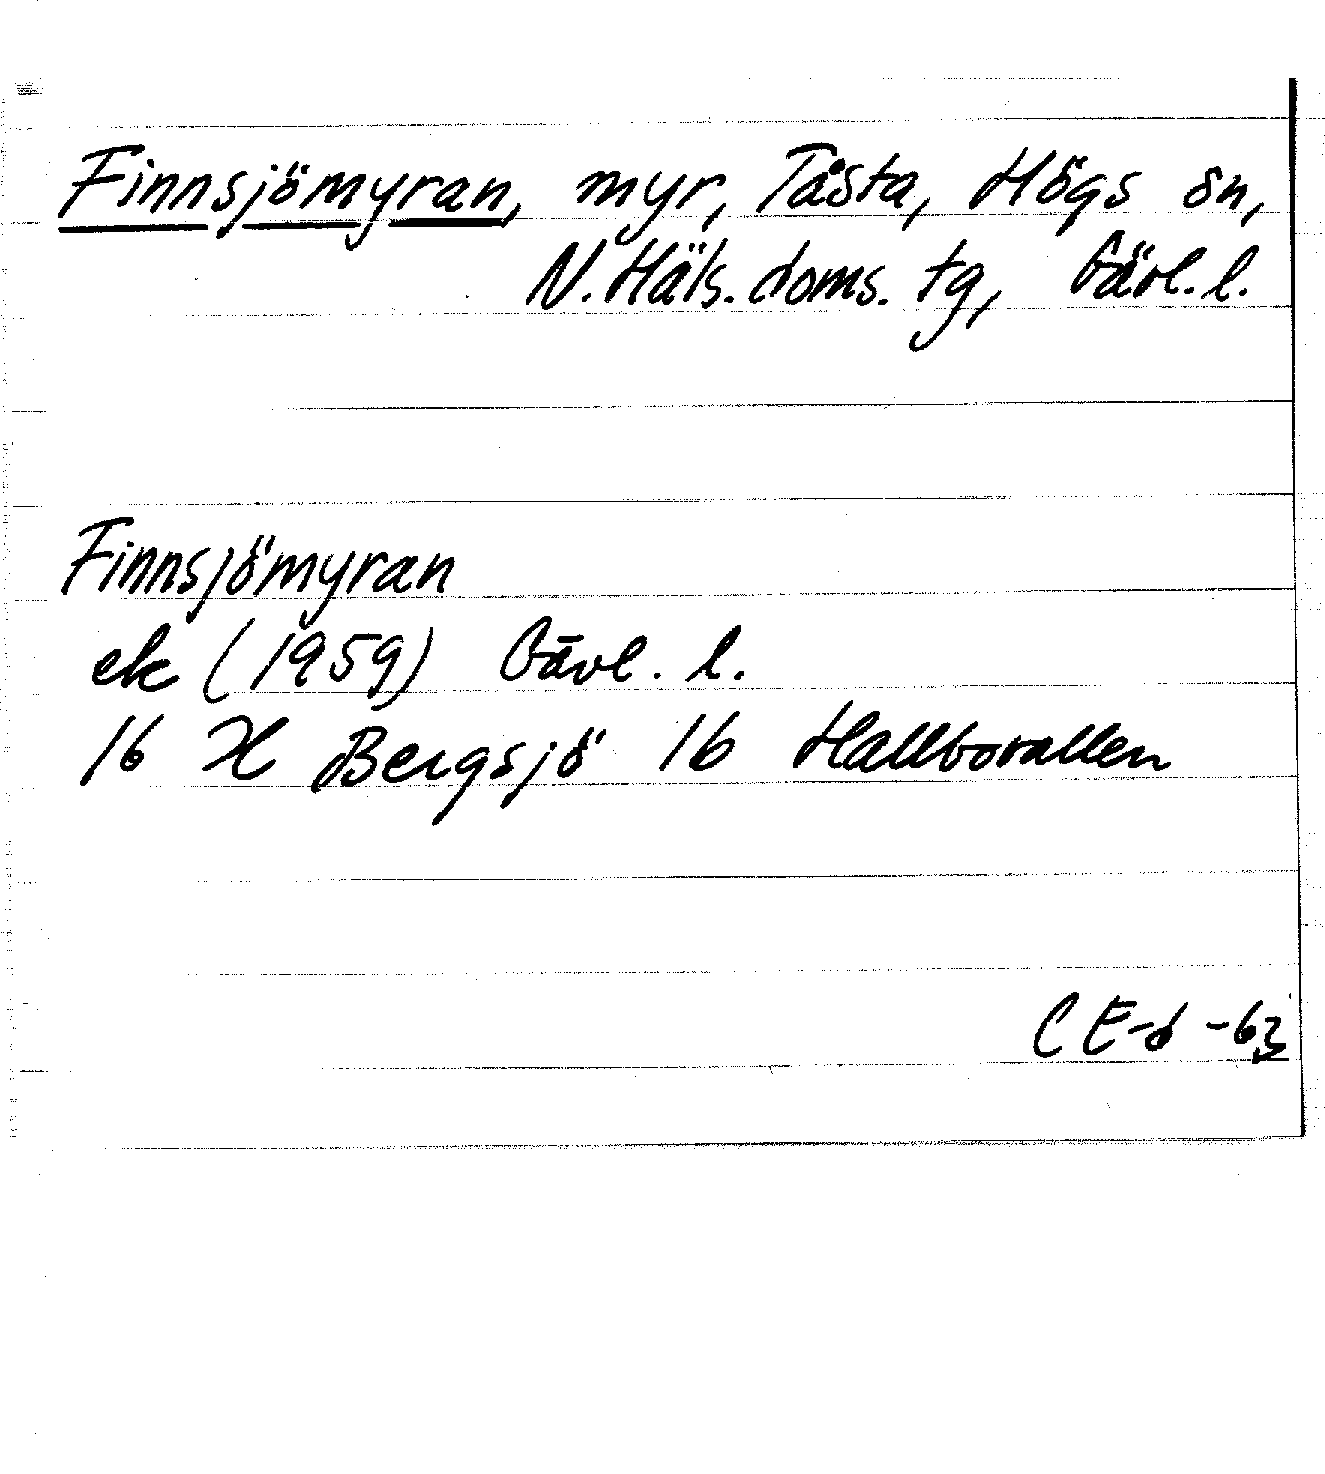 Finnsjömyran, myr, Tåsta, Högs sn,
N. Häls. doms. tg, Gävl. l.
Finnsjömyran
ek (1959) Gävl. l.
16 H Bergsjö 1b Hallbovallen
C E-d -63